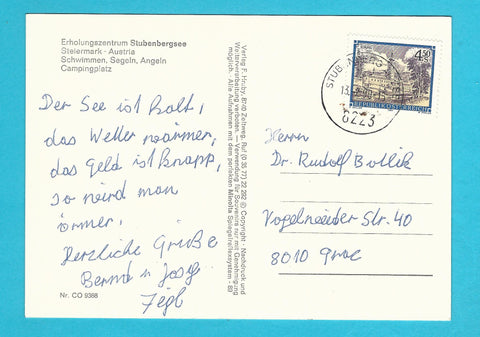 Erholungszentrum Stubenbergsee
Steiermark - Austria
Schwimmen, Segeln, Angeln
Campingplatz
Der See ist kalt,
das Wetter wärmer,
das Geld ist knapp,
so wird man
ärmer.
Herzliche Grüße
Bernd u. Josef
Nr. CO 9388
Verlag F. Hruby, 8740 Zeltweg, Ruf (0 35 77) 22 282 © Copyright - Nachdruck und
Weiterverarbeitung verboten. — Verwendung für Souvenirs nur mit Genehmigung
möglich. Alle Aufnahmen mit dem perfekten Minolta Spiegelreflexsystem - 89
4.50
REPUBLIK ÖSTERREICH
8223
Herrn
Dr. Rudolf
Str. 40
8010 Graz